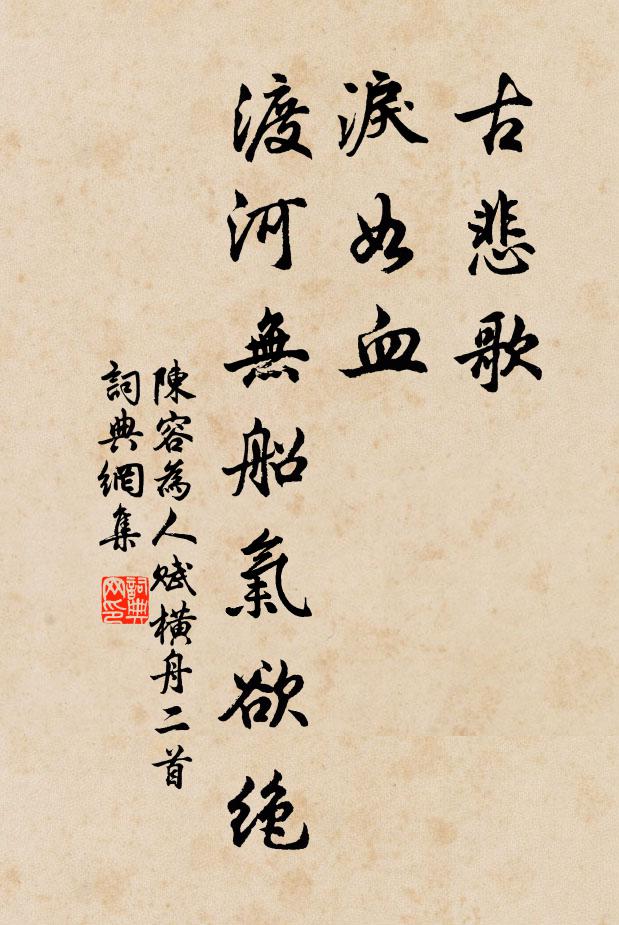 古悲歌
淚如血
渡河無船氣欲絶
陳容為人賦橫舟二首
詞典網集
詞典網印